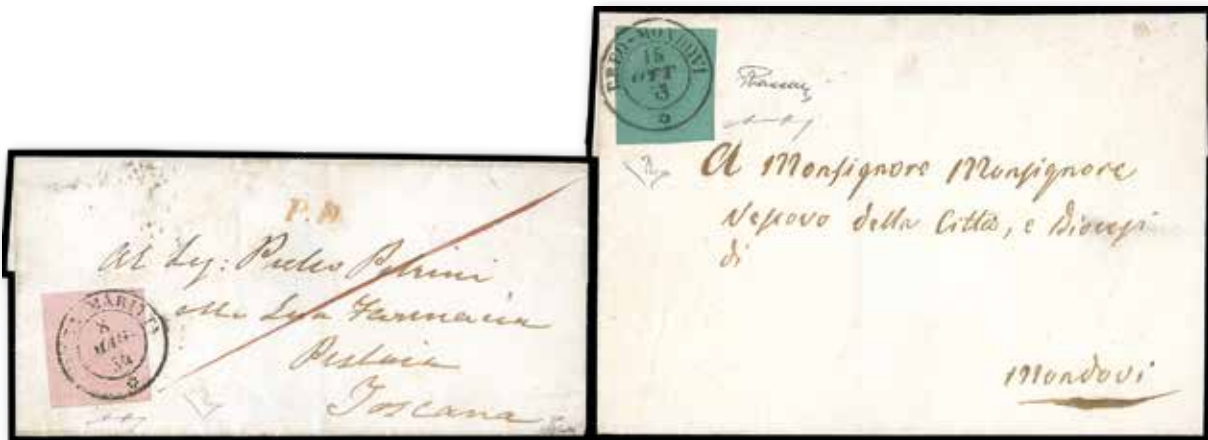 P.D.
Al Sig: Pietro Petrini
alla Sua Farmacia
Pistoia
Toscana
8
MAG
54
BREO-MONDOVI
15
OTT
3
A Monsignore Monsignore
Vescovo della Città, e Diocesi
di
Mondovi